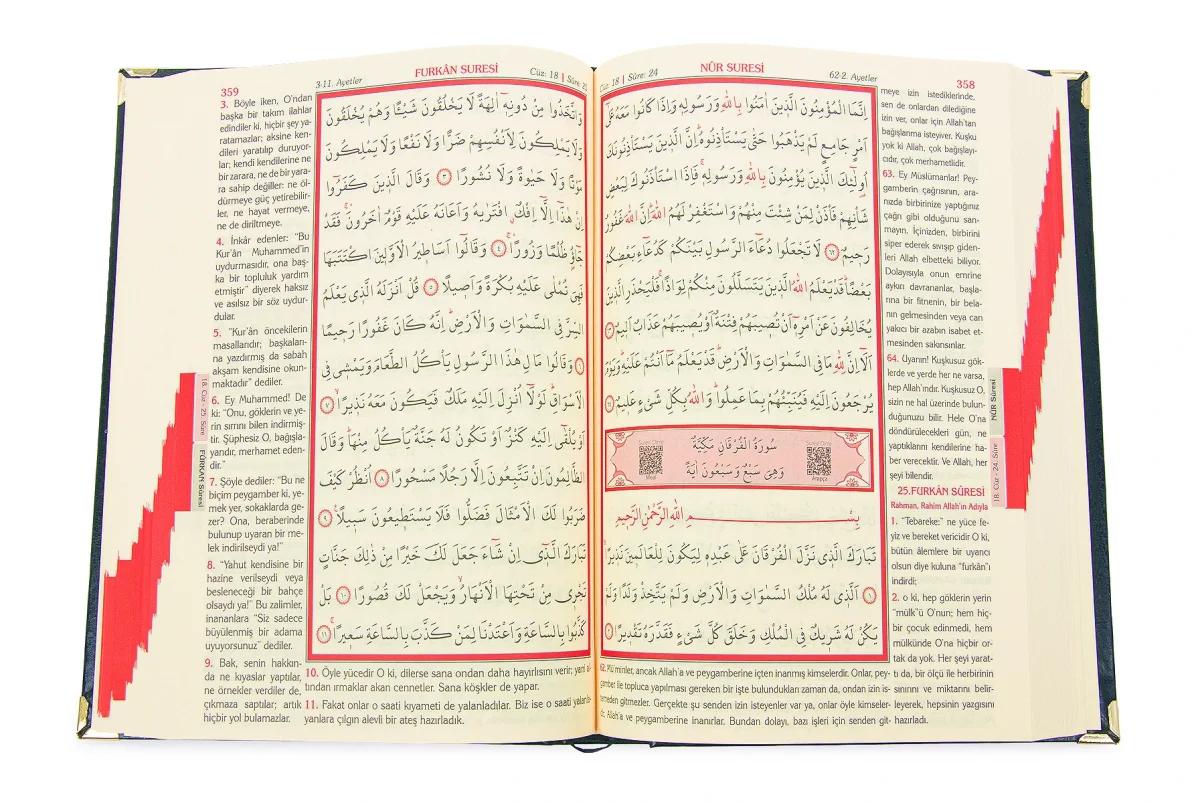 358
NÛR SURESİ
62-2. Ayetler
Cüz: 18 | Sûre: 24
اِنَّمَا الْمُؤْمِنُونَ الَّذِينَ اٰمَنُوا بِاللّٰهِ وَرَسُولِهِ وَاِذَا كَانُوا مَعَهُ عَلٰٓى
اَمْرٍ جَامِعٍ لَمْ يَذْهَبُوا حَتّٰى يَسْتَأْذِنُوهُ اِنَّ الَّذِينَ يَسْتَأْذِنُونَكَ
اُولٰٓئِكَ الَّذِينَ يُؤْمِنُونَ بِاللّٰهِ وَرَسُولِهِ فَاِذَا اسْتَأْذَنُوكَ لِبَعْضِ
شَأْنِهِمْ فَأْذَنْ لِمَنْ شِئْتَ مِنْهُمْ وَاسْتَغْفِرْ لَهُمُ اللّٰهَ اِنَّ اللّٰهَ غَفُورٌ
رَحِيمٌ ٦٢ لَا تَجْعَلُوا دُعَٓاءَ الرَّسُولِ بَيْنَكُمْ كَدُعَٓاءِ بَعْضِكُمْ
بَعْضًا قَدْ يَعْلَمُ اللّٰهُ الَّذِينَ يَتَسَلَّلُونَ مِنْكُمْ لِوَاذًا فَلْيَحْذَرِ الَّذِينَ
يُخَالِفُونَ عَنْ اَمْرِهِٓ اَنْ تُصِيبَهُمْ فِتْنَةٌ اَوْ يُصِيبَهُمْ عَذَابٌ اَلِيمٌ ٦٣
اَلَٓا اِنَّ لِلّٰهِ مَا فِي السَّمٰوَاتِ وَالْاَرْضِ قَدْ يَعْلَمُ مَٓا اَنْتُمْ عَلَيْهِ وَيَوْمَ
يُرْجَعُونَ اِلَيْهِ فَيُنَبِّئُهُمْ بِمَا عَمِلُوا وَاللّٰهُ بِكُلِّ شَيْءٍ عَلِيمٌ ٦٤
سُورَةُ الْفُرْقَانِ مَكِّيَّةٌ
وَهِيَ سَبْعٌ وَسَبْعُونَ اٰيَةً
بِسْمِ اللّٰهِ الرَّحْمٰنِ الرَّحِيمِ
تَبَارَكَ الَّذِي نَزَّلَ الْفُرْقَانَ عَلٰى عَبْدِهِ لِيَكُونَ لِلْعَالَمِينَ نَذِيرًا
١ اَلَّذِي لَهُ مُلْكُ السَّمٰوَاتِ وَالْاَرْضِ وَلَمْ يَتَّخِذْ وَلَدًا وَلَمْ
يَكُنْ لَهُ شَرِيكٌ فِي الْمُلْكِ وَخَلَقَ كُلَّ شَيْءٍ فَقَدَّرَهُ تَقْدِيرًا ٢
62. Mü'minler, ancak Allah'a ve peygamberine içten inanmış kimselerdir. Onlar, pey-
gamber ile topluca yapılması gereken bir işte bulundukları zaman da, ondan izin is-
temeden gitmezler. Gerçekte şu senden izin isteyenler var ya, onlar öyle kimseler-
dir, Allah'a ve peygamberine inanırlar. Bundan dolayı, bazı işleri için senden git-
meye izin istediklerinde,
sen de onlardan dilediğine
izin ver, onlar için Allah'tan
bağışlanma isteyiver. Kuşku
yok ki Allah, çok bağışlayı-
cıdır, çok merhametlidir.
63. Ey Müslümanlar! Pey-
gamberin çağrısının, ara-
nızda birbirinize yaptığınız
çağrı gibi olduğunu san-
mayın. İçinizden, birbirini
siper ederek sıvışıp giden-
leri Allah elbetteki biliyor.
Dolayısıyla onun emrine
aykırı davrananlar, başla-
rına bir fitnenin, bir bela-
nın gelmesinden veya can
yakıcı bir azabın isabet et-
mesinden sakınsınlar.
64. Uyanın! Kuşkusuz gök-
lerde ve yerde her ne varsa,
hep Allah'ındır. Kuşkusuz O,
sizin ne hal üzerinde bulun-
duğunuzu bilir. Hele O'na
döndürülecekleri gün, ne
yaptıklarını kendilerine ha-
ber verecektir. Ve Allah, her
şeyi bilendir.
25.FURKÂN SÛRESİ
Rahman, Rahim Allah'ın Adıyla
1. "Tebareke:" ne yüce fe-
yiz ve bereket vericidir O ki,
bütün âlemlere bir uyarıcı
olsun diye kuluna "furkân"ı
indirdi;
2. o ki, hep göklerin yerin
"mülk"ü O'nun; hem hiç-
bir çocuk edinmedi, hem
mülkünde O'na hiçbir or-
tak da yok. Her şeyi yarat-
tı da, bir ölçü ile herbirinin
sınırını ve miktarını belir-
leyerek, hepsinin yazgısını
hazırladı.
NÛR Sûresi
18. Cüz - 24. Sûre
359
3-11. Ayetler
FURKÂN SURESİ
Cüz: 18 | Sûre: 25
وَاتَّخَذُوا مِنْ دُونِهِٓ اٰلِهَةً لَا يَخْلُقُونَ شَيْـًٔا وَهُمْ يُخْلَقُونَ
وَلَا يَمْلِكُونَ لِاَنْفُسِهِمْ ضَرًّا وَلَا نَفْعًا وَلَا يَمْلِكُونَ
مَوْتًا وَلَا حَيٰوةً وَلَا نُشُورًا ٣ وَقَالَ الَّذِينَ كَفَرُٓوا
اِنْ هٰذَٓا اِلَّٓا اِفْكٌ افْتَرٰيهُ وَاَعَانَهُ عَلَيْهِ قَوْمٌ اٰخَرُونَ فَقَدْ
جَٓاؤُ ظُلْمًا وَزُورًا ٤ وَقَالُٓوا اَسَاطِيرُ الْاَوَّلِينَ اكْتَتَبَهَا
فَهِيَ تُمْلٰى عَلَيْهِ بُكْرَةً وَاَصِيلًا ٥ قُلْ اَنْزَلَهُ الَّذِي يَعْلَمُ
السِّرَّ فِي السَّمٰوَاتِ وَالْاَرْضِ اِنَّهُ كَانَ غَفُورًا رَحِيمًا
٦ وَقَالُوا مَالِ هٰذَا الرَّسُولِ يَأْكُلُ الطَّعَامَ وَيَمْشِي فِي
الْاَسْوَاقِ لَوْلَٓا اُنْزِلَ اِلَيْهِ مَلَكٌ فَيَكُونَ مَعَهُ نَذِيرًا ٧
اَوْ يُلْقٰٓى اِلَيْهِ كَنْزٌ اَوْ تَكُونُ لَهُ جَنَّةٌ يَأْكُلُ مِنْهَا وَقَالَ
الظَّالِمُونَ اِنْ تَتَّبِعُونَ اِلَّا رَجُلًا مَسْحُورًا ٨ اُنْظُرْ كَيْفَ
ضَرَبُوا لَكَ الْاَمْثَالَ فَضَلُّوا فَلَا يَسْتَطِيعُونَ سَبِيلًا ٩
تَبَارَكَ الَّذِٓي اِنْ شَٓاءَ جَعَلَ لَكَ خَيْرًا مِنْ ذٰلِكَ جَنَّاتٍ
تَجْرِي مِنْ تَحْتِهَا الْاَنْهَارُ وَيَجْعَلْ لَكَ قُصُورًا ١٠ بَلْ
كَذَّبُوا بِالسَّاعَةِ وَاَعْتَدْنَا لِمَنْ كَذَّبَ بِالسَّاعَةِ سَعِيرًا ١١
3. Böyle iken, O'ndan
başka bir takım ilahlar
edindiler ki, hiçbir şey ya-
ratamazlar; aksine ken-
dileri yaratılıp duruyor-
lar; kendi kendilerine ne
bir zarara, ne de bir yara-
ra sahip değiller: ne öl-
dürmeye güç yetirebilir-
ler, ne hayat vermeye,
ne de diriltmeye.
4. İnkâr edenler: "Bu
Kur'ân Muhammed'in
uydurmasıdır, ona baş-
ka bir topluluk yardım
etmiştir" diyerek haksız
ve asılsız bir söz uydur-
dular.
5. "Kur'ân öncekilerin
masallarıdır; başkaları-
na yazdırmış da sabah
akşam kendisine okun-
maktadır" dediler.
6. Ey Muhammed! De
ki: "Onu, göklerin ve ye-
rin sırrını bilen indirmiş-
tir. Şüphesiz O, bağışla-
yandır, merhamet eden-
dir."
7. Şöyle dediler: "Bu ne
biçim peygamber ki, ye-
mek yer, sokaklarda ge-
zer? Ona, beraberinde
bulunup uyaran bir me-
lek indirilseydi ya!"
8. "Yahut kendisine bir
hazine verilseydi veya
besleneceği bir bahçe
olsaydı ya!" Bu zalimler,
inananlara "Siz sadece
büyülenmiş bir adama
uyuyorsunuz" dediler.
9. Bak, senin hakkın-
da ne kıyaslar yaptılar,
ne örnekler verdiler de,
çıkmaza saptılar; artık
hiçbir yol bulamazlar.
10. Öyle yücedir O ki, dilerse sana ondan daha hayırlısını verir; yani al-
tından ırmaklar akan cennetler. Sana köşkler de yapar.
11. Fakat onlar o saati kıyameti de yalanladılar. Biz ise o saati yalanla-
yanlara çılgın alevli bir ateş hazırladık.
18. Cüz - 25. Sûre
FÛRKAN Sûresi